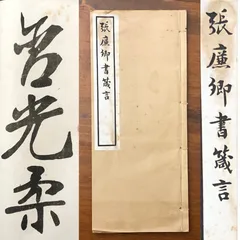 含光柔
張廉卿書箴言
張廉卿書箴言